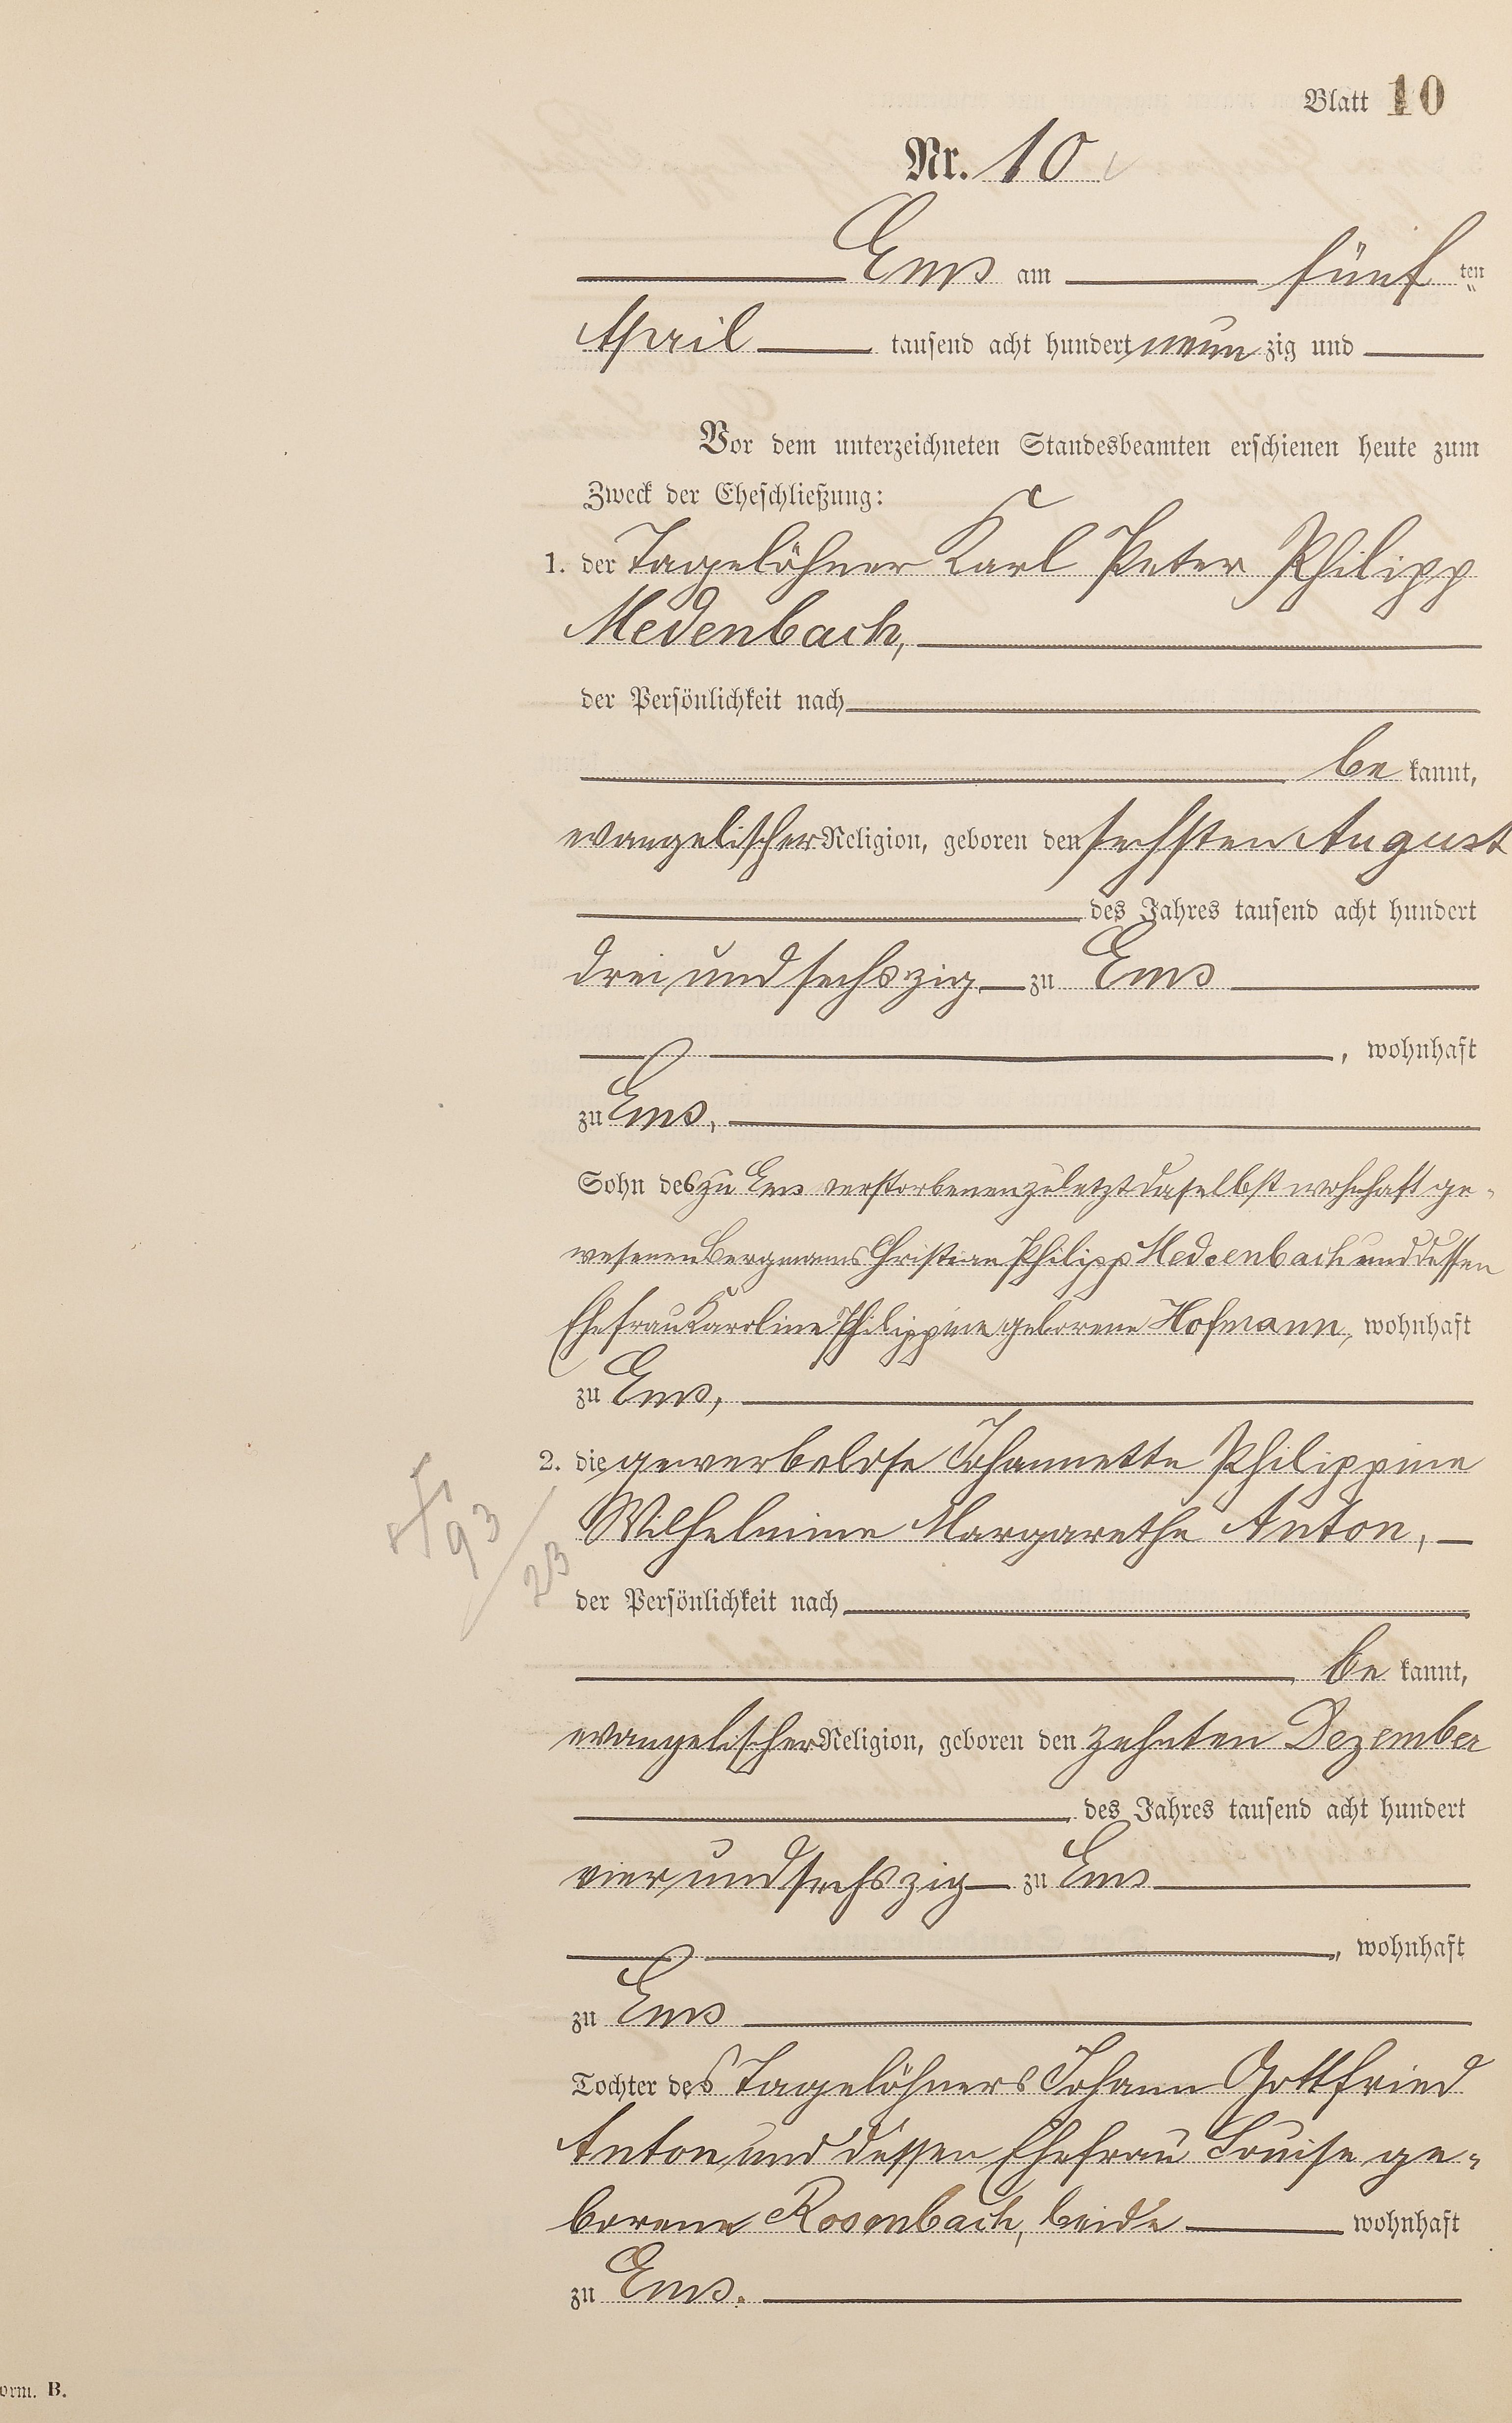 Blatt 10
Nr. 10
Ems am fünf ten
April tausend acht hundert neun zig und
Vor dem unterzeichneten Standesbeamten erschienen heute zum
Zweck der Eheschließung:
1. der Tagelöhner Karl Peter Philipp
Medenbach,
der Persönlichkeit nach
be kannt,
evangelischer Religion, geboren den sechsten August
des Jahres tausend acht hundert
drei und sechszig zu Ems
, wohnhaft
zu Ems,
Sohn des zu Ems verstorbenen zuletzt daselbst wohnhaft ge-
wesenen Bergmanns Christian Philipp Medenbach und dessen
Ehefrau Karoline Philippine geborene Hofmann, wohnhaft
zu Ems,
2. die gewerbelose Johannette Philippine
Wilhelmine Margarethe Anton,
93
23
der Persönlichkeit nach
be kannt,
evangelischer Religion, geboren den zehnten Dezember
des Jahres tausend acht hundert
vier und sechszig zu Ems
, wohnhaft
zu Ems
Tochter des Tagelöhners Johann Gottfried
Anton und dessen Ehefrau Louise ge-
borene Rosenbach, beide wohnhaft
zu Ems.
orm. B.